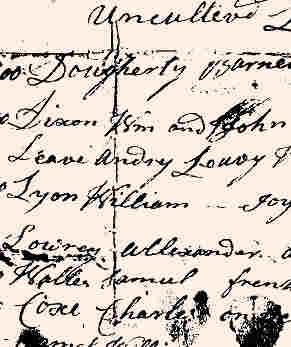 Uncultivd L
00 Dougherty Barne
0 Dixon Wm and John
Leavi Andry Louvy
0 Lyon William - Joy
Lowrey Allexander a
Waller Samuel frenk
Coxe Charles on